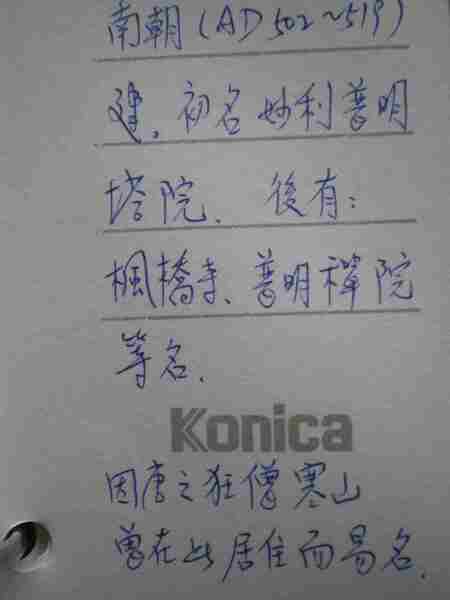 南朝(AD 502~519)
建,初名妙利普明
塔院、後有:
楓橋寺、普明禪院
等名、
Konica
因唐之狂僧寒山
曾在此居住而易名、